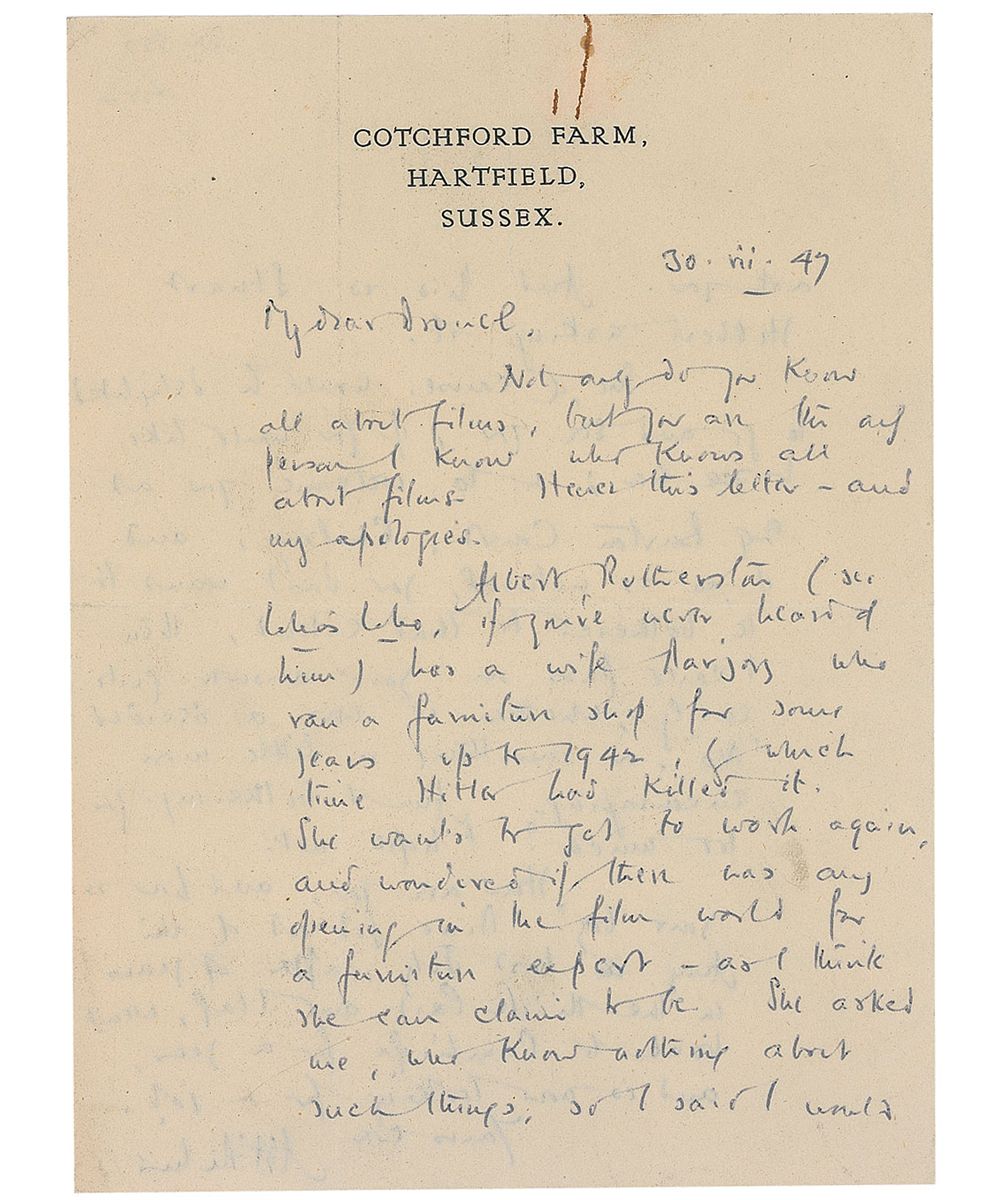 COTCHFORD FARM,
HARTFIELD,
SUSSEX.
30. vii. 47
My dear
Not only do you know
all about films, but you are the only
person I know who knows all
about films. Hence this letter – and
my apologies.
Albert Rutherston (see
Who's Who, if you've never heard of
him) has a wife Marjory who
ran a furniture shop for some
years up to 1942, by which
time Hitler had killed it.
She wants to get to work again,
and wondered if there was any
opening in the film world for
a furniture expert – as I think
she can claim to be. She asked
me, who know nothing about
such things, so I said I would